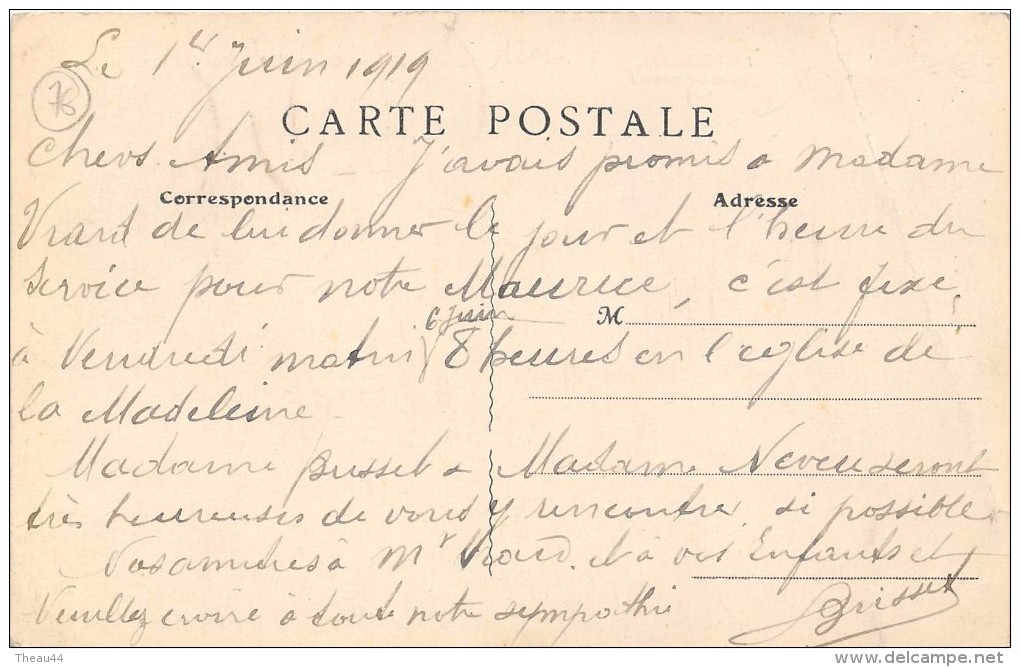 Le 1er Juin 1919
76
CARTE POSTALE
Chers Amis _ J'avais promis a Madame
Correspondance
Adresse
Vrard de lui donner le jour et l'heure du
Service pour notre Maurice, c'est fixé,
6 Juin
M
à Vendredi matin 8 heures en l'eglise de
la Madeleine _
Madame Brisset & Madame Neveu seront
très heureuses de vous y rencontrer si possible
Nos amitiés à Mr Vrard et à vos Enfants et
Veuillez croire à toute notre sympathie
Brisset
Theau44
delcampe.net